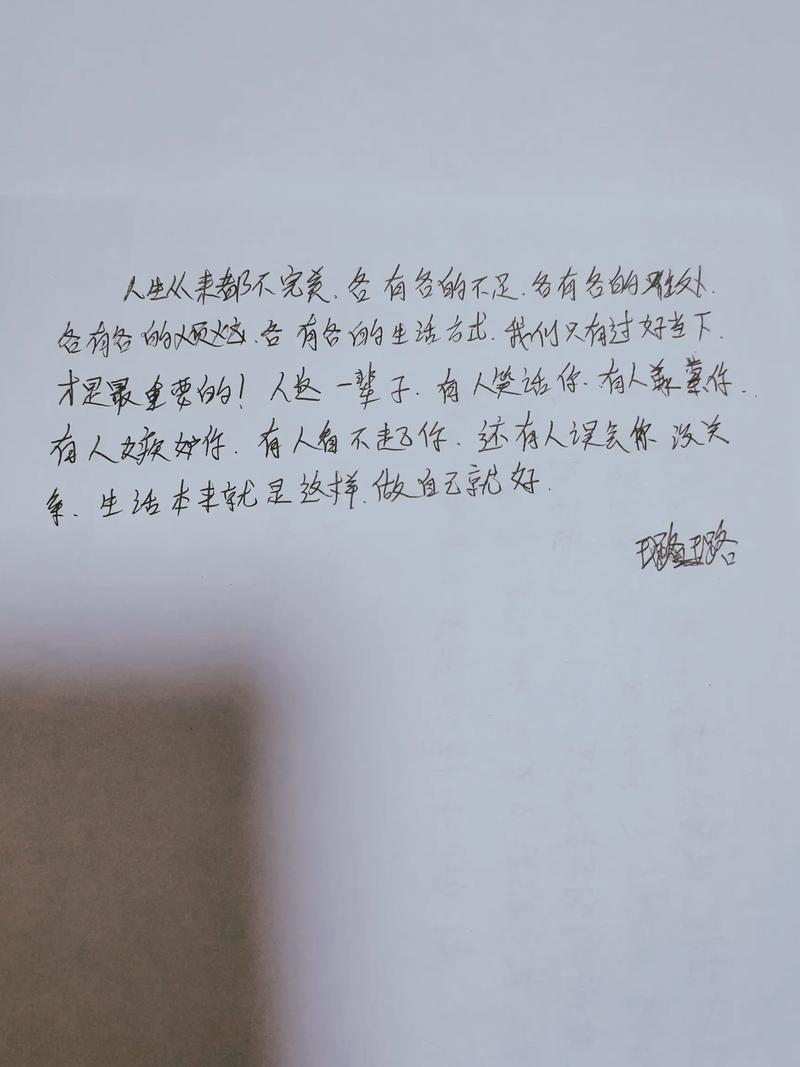 人生从来都不完美、各有各的不足、各有各的难处、
各有各的烦恼、各有各的生活方式、我们只有过好当下、
才是最重要的！人这一辈子、有人笑话你、有人欺你、
有人嫉妒你、有人看不起你、还有人误会你没关
系、生活本来就是这样、做自己就好、
璐璐